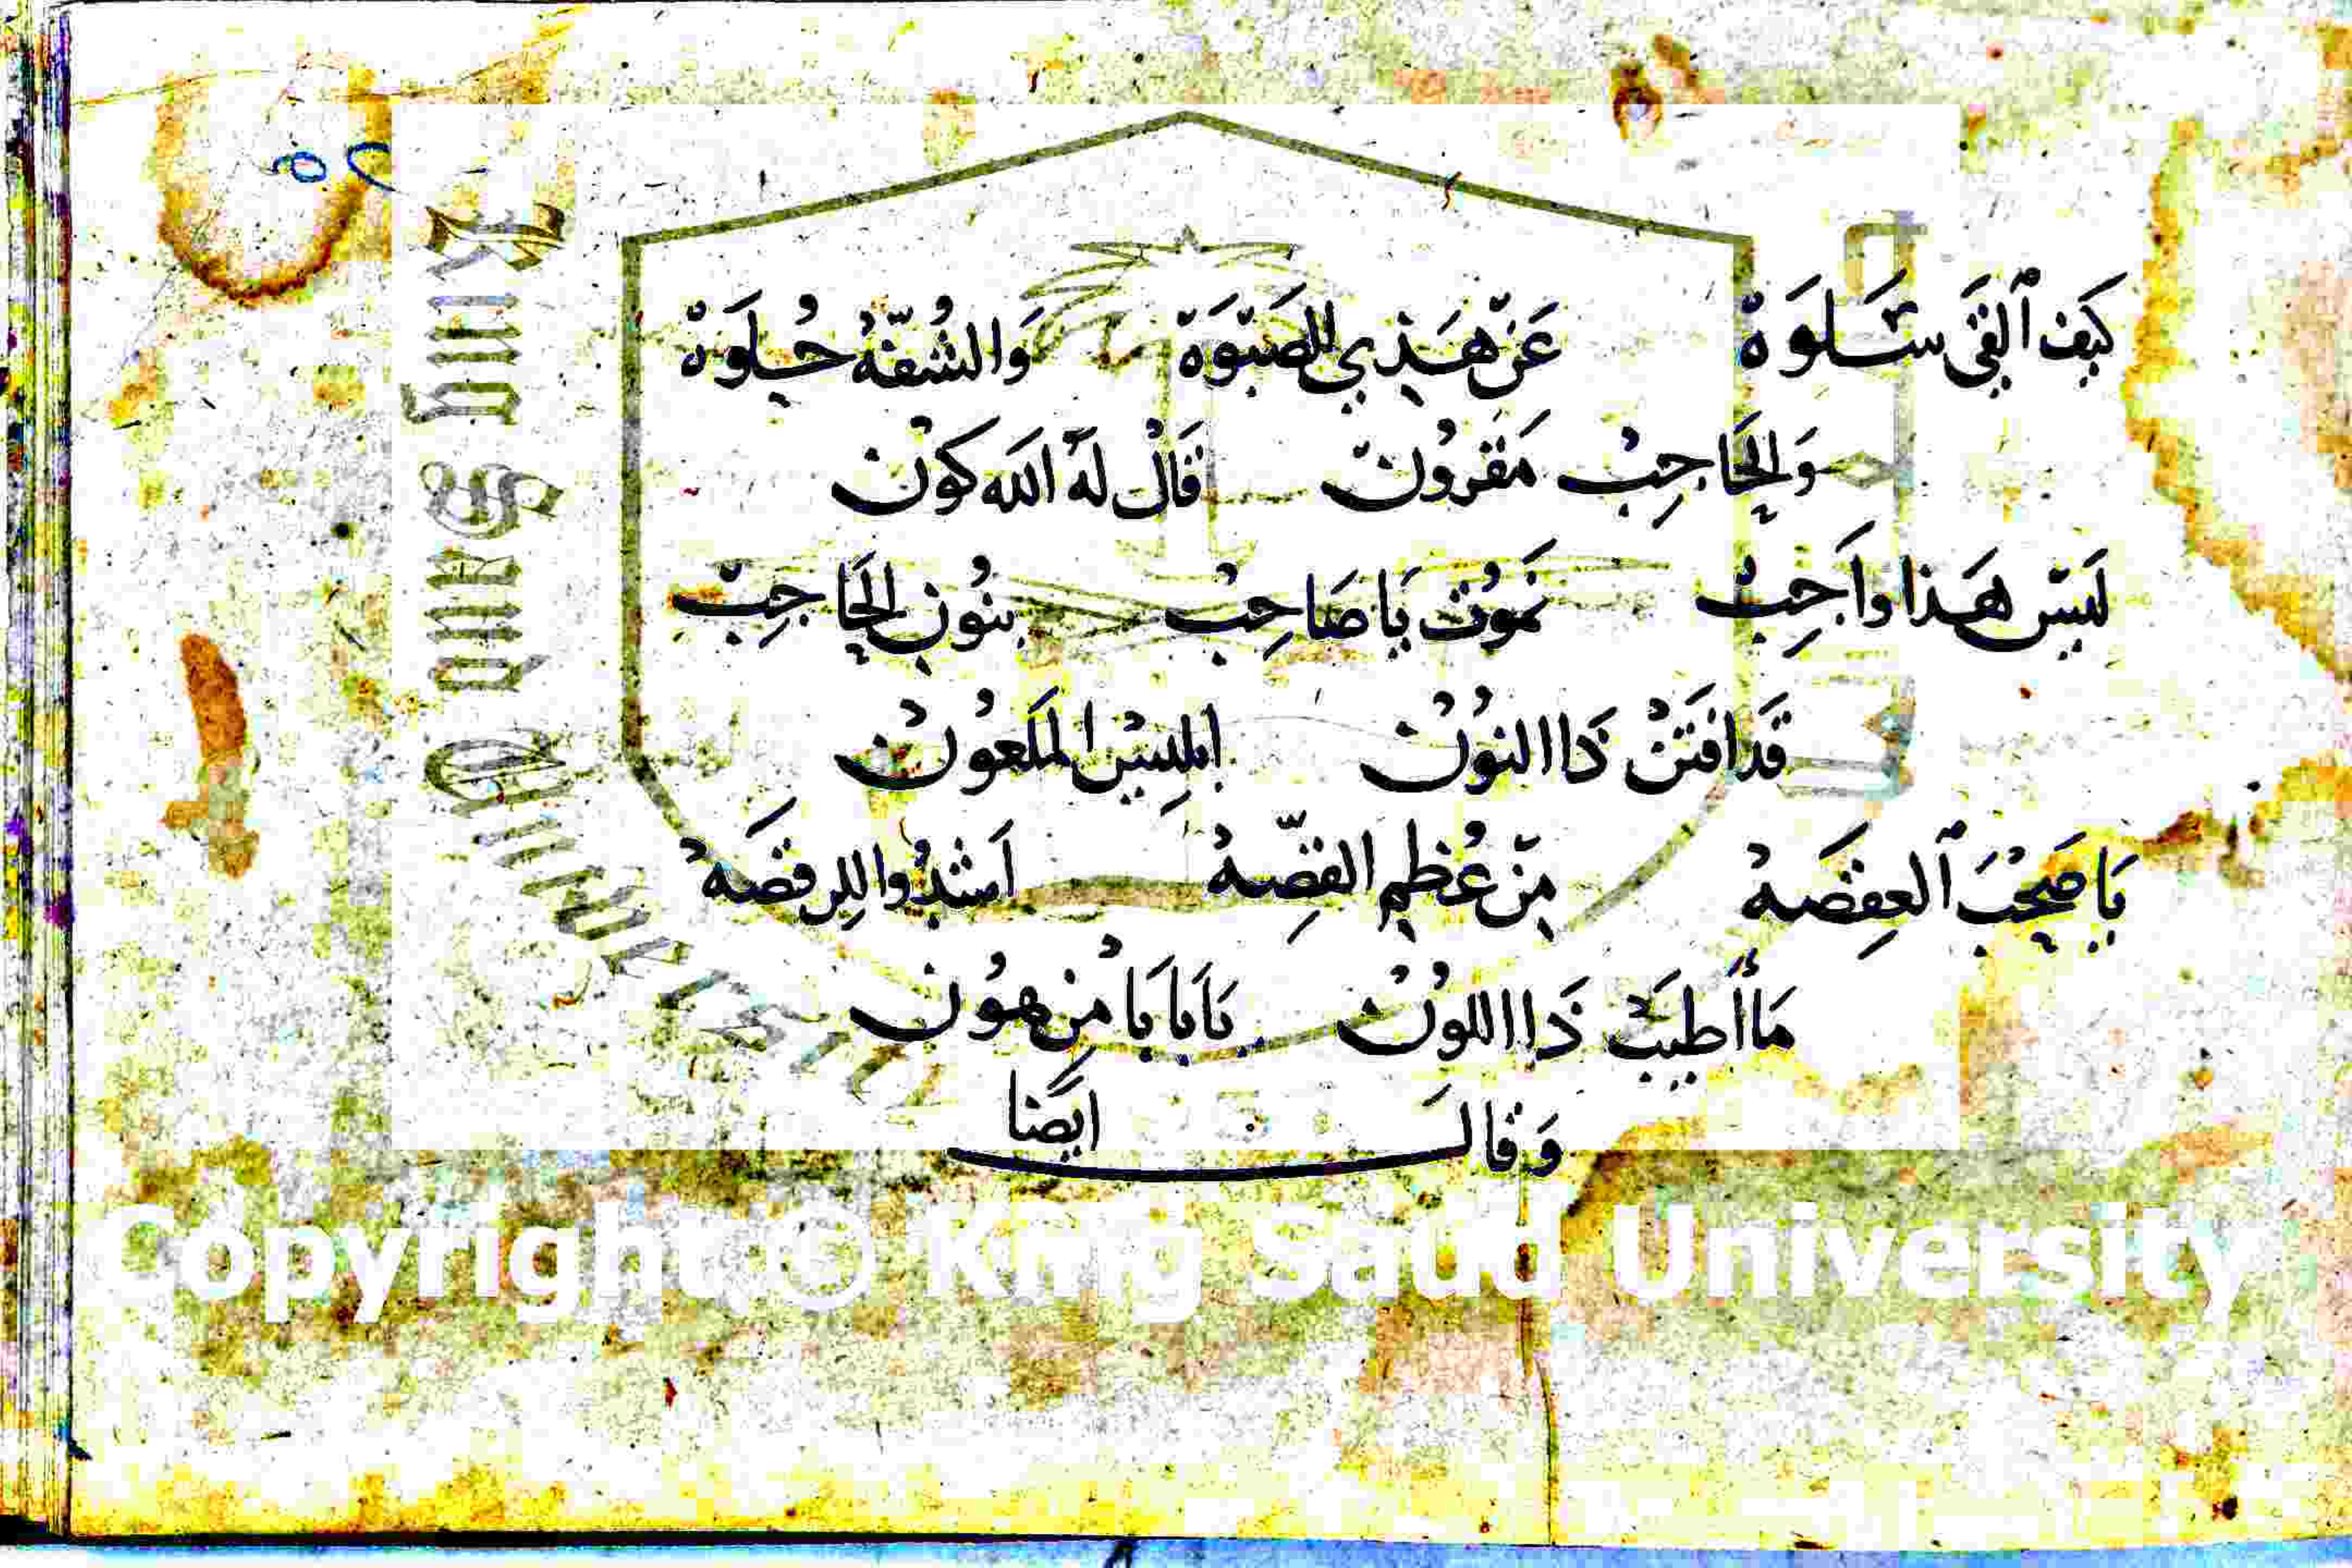 كَيف ٱلقَى سَلوَة عَنْ هَذِي الصَبْوَة وَالشُفّهْ حُلوَهْ
وَالحَاجِبْ مَقرُونْ قَالْ لَهْ الله كونْ
لَيسْ هَذا واَجِبْ نَموُتْ يَا صَاحِبْ بنُونِ الحَاجِبْ
قَد افتَنْ ذَا النوُنْ ابلِيسْ الملَعوُنْ
يَا صَحْبَ ٱلعِفصَهْ مِنْ عُظمِ القِصّهْ اَشدُوا للِرقصَهْ
مَا أَطيَبْ ذَا اللوُنْ يَابَابَا مِنْ هوُنْ
وَقالَ ايضا
Copyright © King Saud University
King Saud University